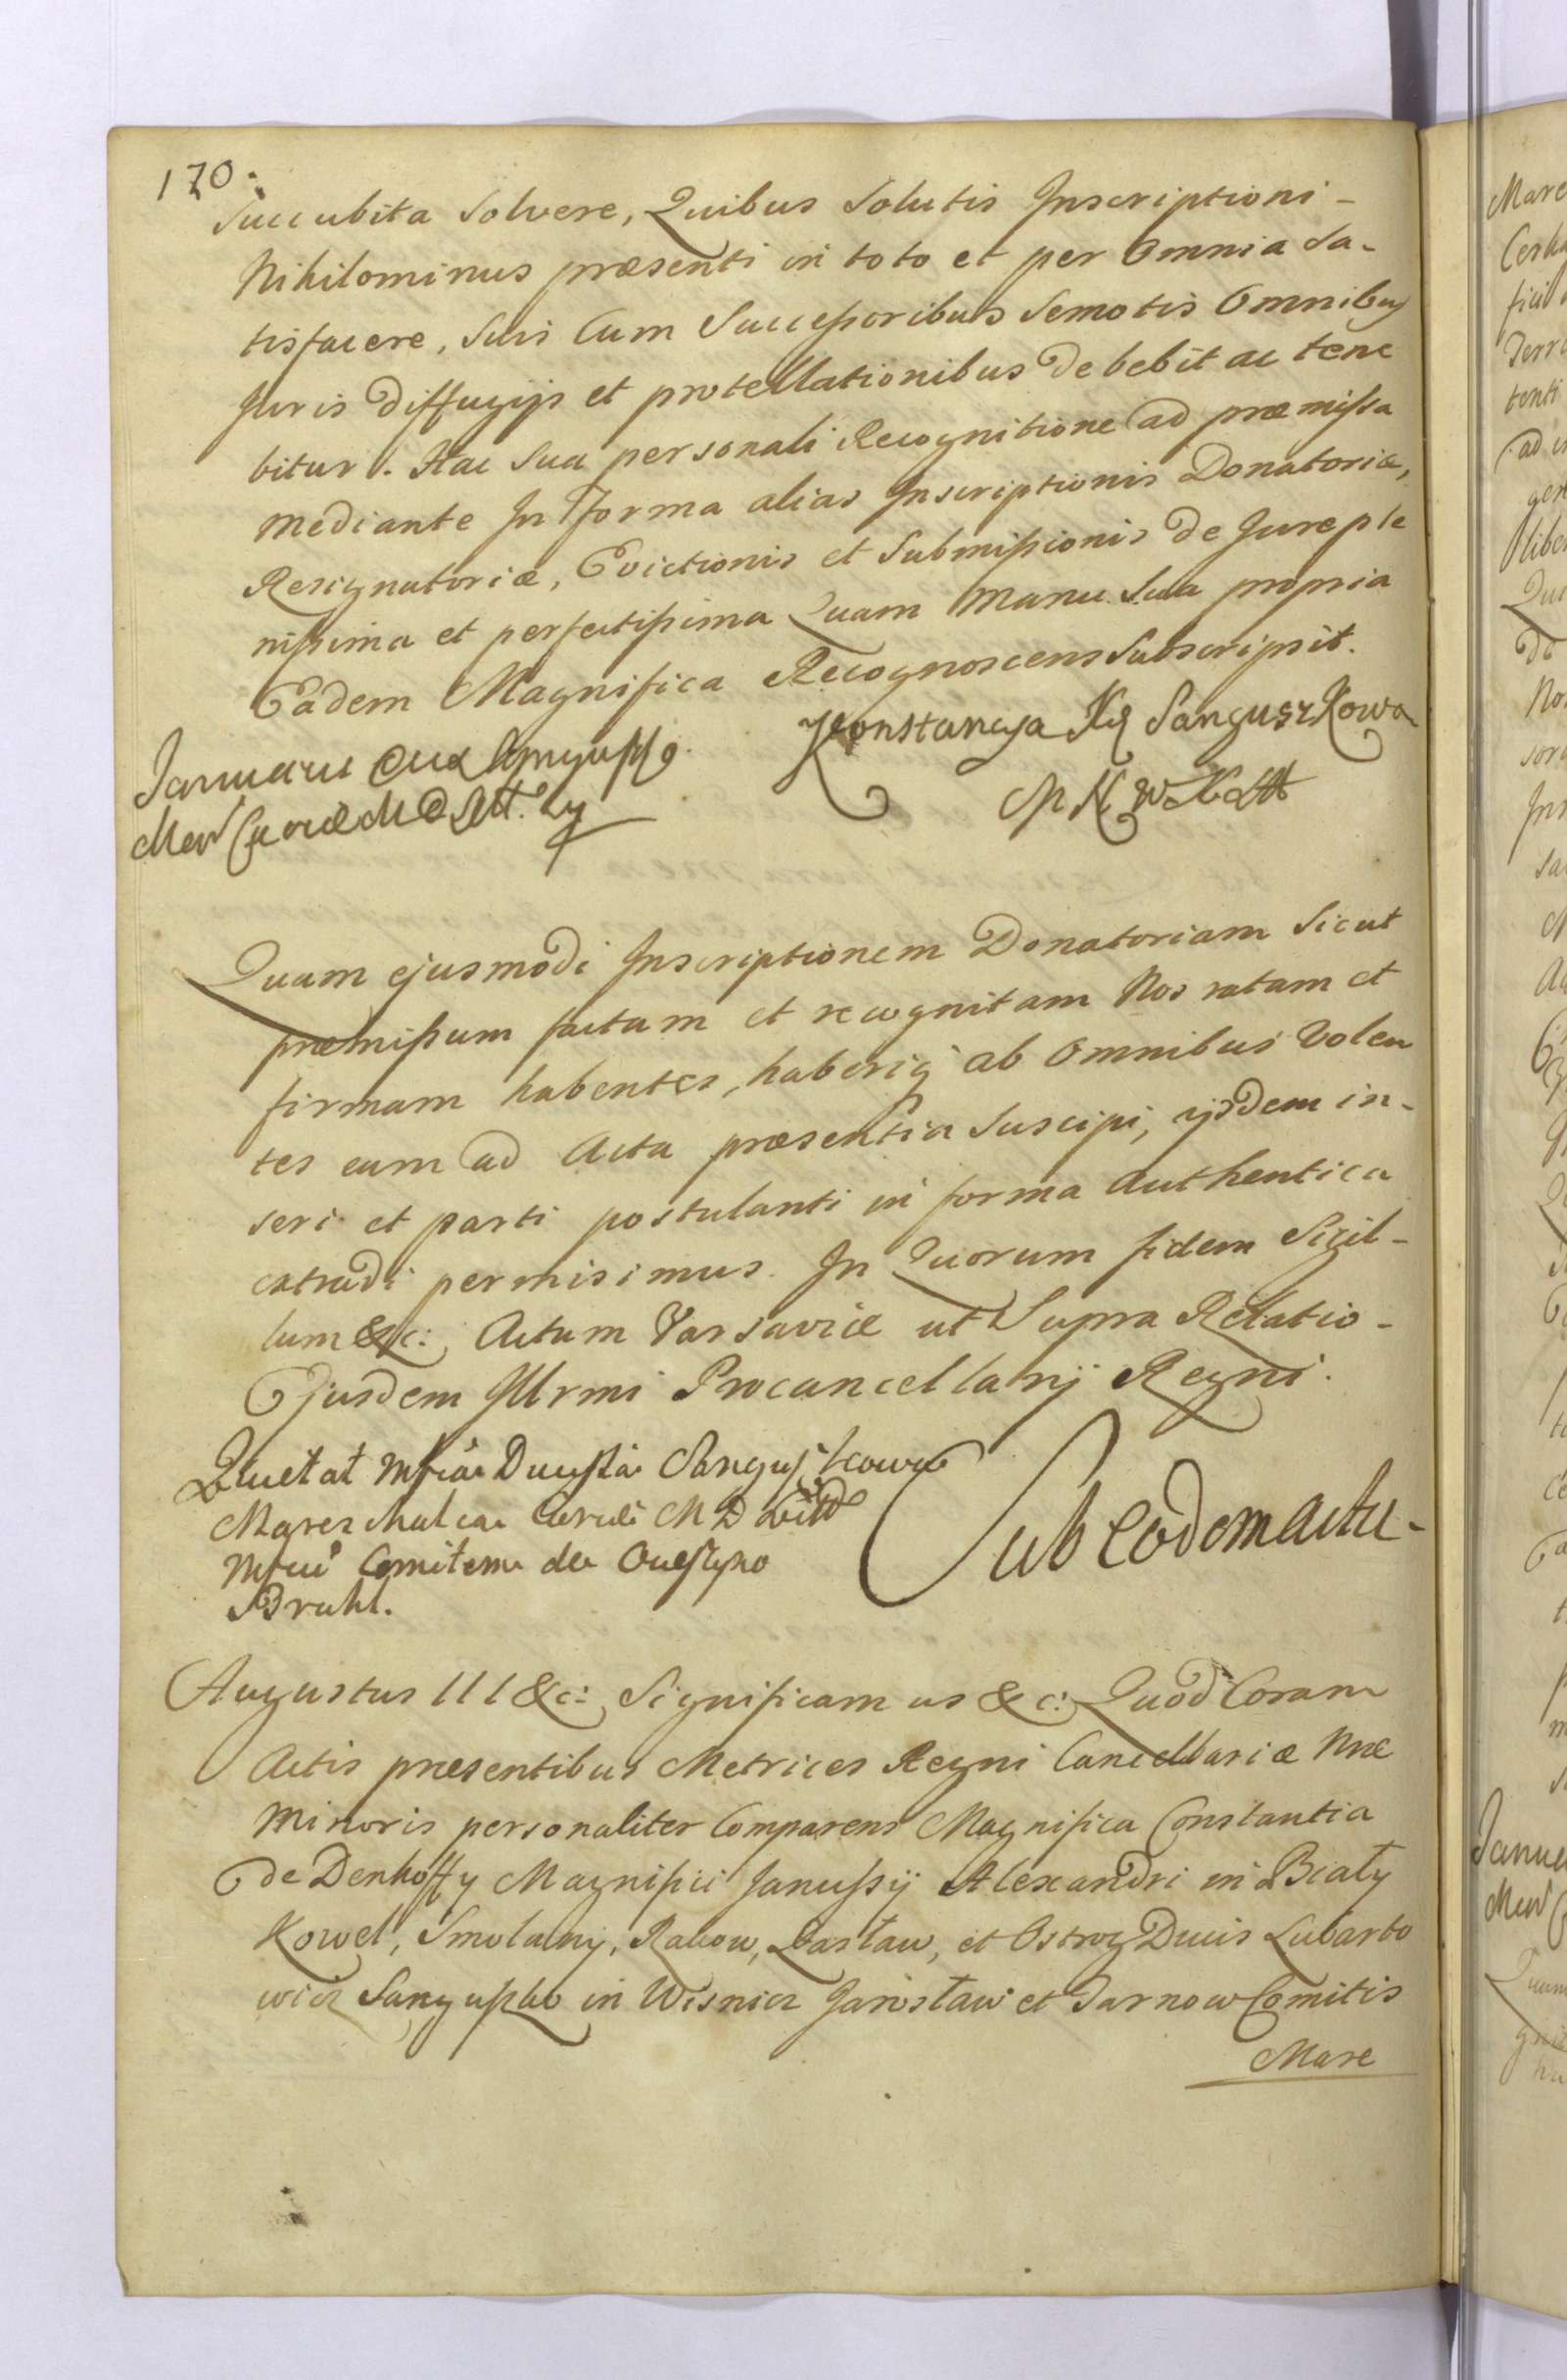 170.
Succubita Solvere, Quibus Solutis Inscriptioni-
Nihilominus præsenti in toto et per Omnia Sa-
tisfacere, Suis Cum Successoribus Semotis Omnibus
Juris Diffugijs et protellationibus Debebit ac tene
bitur. Hac Sua personali Recognitione ad præmissa
Mediante In forma alias Inscriptionis Donatoriæ,
Resignatoriæ, Evictionis et Submissionis de Jure ple
nissima et perfectissima Quam Manu Sua propria
Eadem Magnifica Recognoscens Subscripsit.
Konstancya Xż Sanguszkowa
M N W X Litt
Quam ejusmodi Inscriptionem Donatoriam Sicut
præmissum factam et recognitam Nos ratam et
firmam habentes, haberiq ab Omnibus Volen
tes eam ad Acta præsentia Suscipi, ijsdem in-
seri et parti postulanti in forma Authentica
extradi permisimus. In Quorum fidem Sigil-
lum &c: Actum Varsaviæ ut Supra Relatio-
Ejusdem Illrmi Procancellarij Regni.
Quietat Mfica Ducissa Sanguszkowa
Mareschalca Curiæ M D Litt
Mfcu Comitem de Brühl.
Sub Eodem Actu-
Augustus III &c: Significamus &c: Quod Coram
Actis præsentibus Metrices Regni Cancellariæ Nræ
Minoris personaliter Comparens Magnifica Constantia
de Denhoffy Magnifici Janussij Alexandri in Biały
Kowel, Smolany, Rakow, Zasław, et Ostrog Ducis Lubarto
wicz Sangusko in Wisnicz Jarosław et Tarnow Comitis
Mare